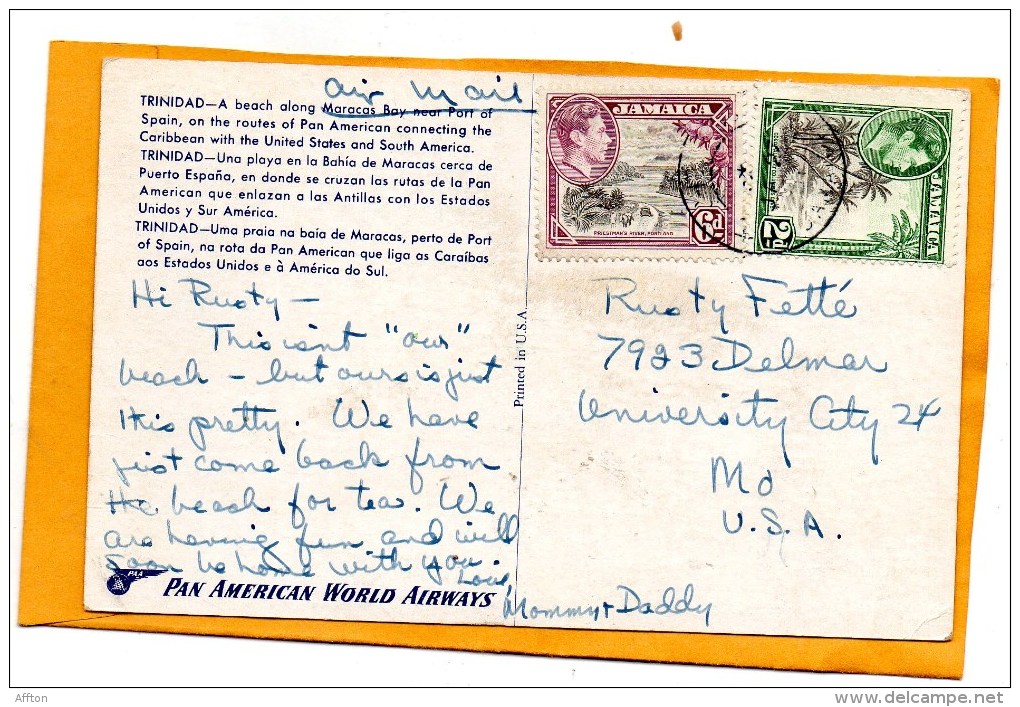 Air Mail
TRINIDAD—A beach along Maracas Bay near Port of
Spain, on the routes of Pan American connecting the
Caribbean with the United States and South America.
TRINIDAD—Una playa en la Bahía de Maracas cerca de
Puerto España, en donde se cruzan las rutas de la Pan
American que enlazan a las Antillas con los Estados
Unidos y Sur América.
TRINIDAD—Uma praia na baía de Maracas, perto de Port
of Spain, na rota da Pan American que liga as Caraíbas
aos Estados Unidos e à América do Sul.
Hi Rusty —
This isnt "our"
beach — but ours is just
this pretty. We have
just come back from
the beach for tea. We
are having fun and will
soon be home with you
Love,
Mommy + Daddy
PAA
PAN AMERICAN WORLD AIRWAYS
Printed in U.S.A.
JAMAICA
PRIESTMAN'S RIVER, PORTLAND
6d
JAMAICA
2d
Rusty Fetté
7923 Delmar
University City 24
Mo
U.S.A.
Affton
www.delcampe.net